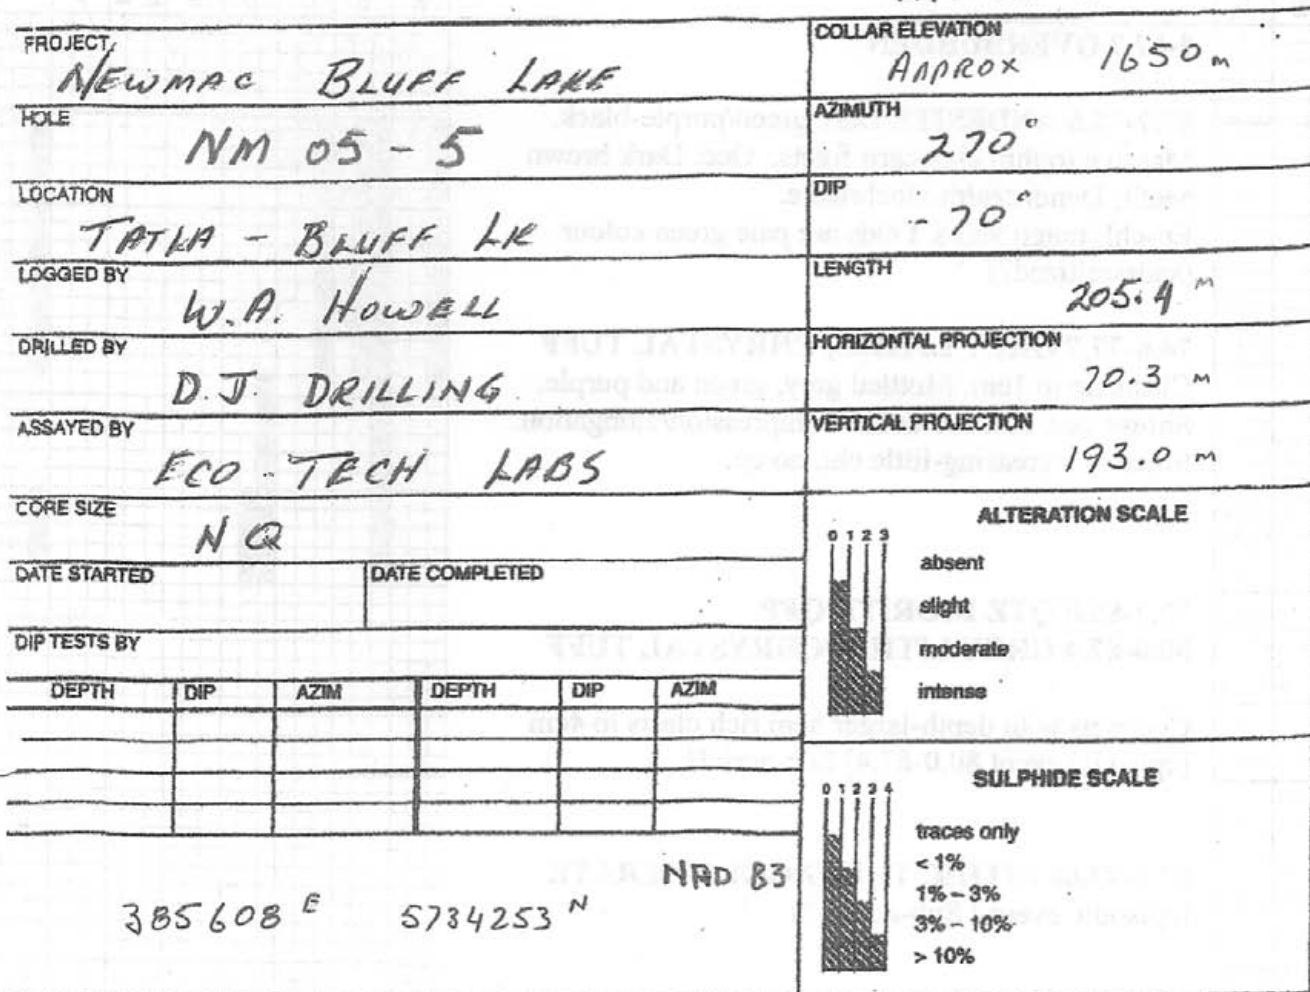 PROJECT
NEWMAC BLUFF LAKE
HOLE
NM 05 - 5
LOCATION
TATLA - BLUFF LK
LOGGED BY
W.A. HOWELL
DRILLED BY
D.J DRILLING
ASSAYED BY
ECO TECH LABS
CORE SIZE
NQ
DATE STARTED DATE COMPLETED
DIP TESTS BY
DEPTH DIP AZIM DEPTH DIP AZIM
NAD 83
385608 E 5734253 N
COLLAR ELEVATION
APPROX 1650 m
AZIMUTH
270°
DIP
- 70°
LENGTH
205.4 m
HORIZONTAL PROJECTION
70.3 m
VERTICAL PROJECTION
193.0 m
ALTERATION SCALE
0 1 2 3
absent
slight
moderate
intense
SULPHIDE SCALE
0 1 2 3 4
traces only
< 1%
1% - 3%
3% - 10%
> 10%